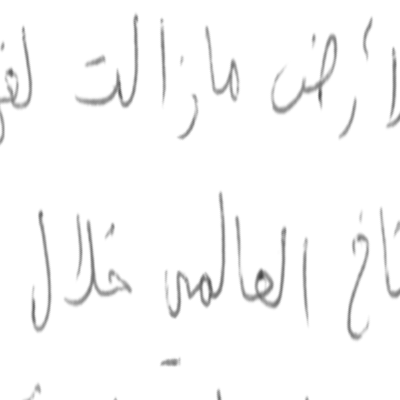 لأرض مازالت
ناخ العالمي خلال